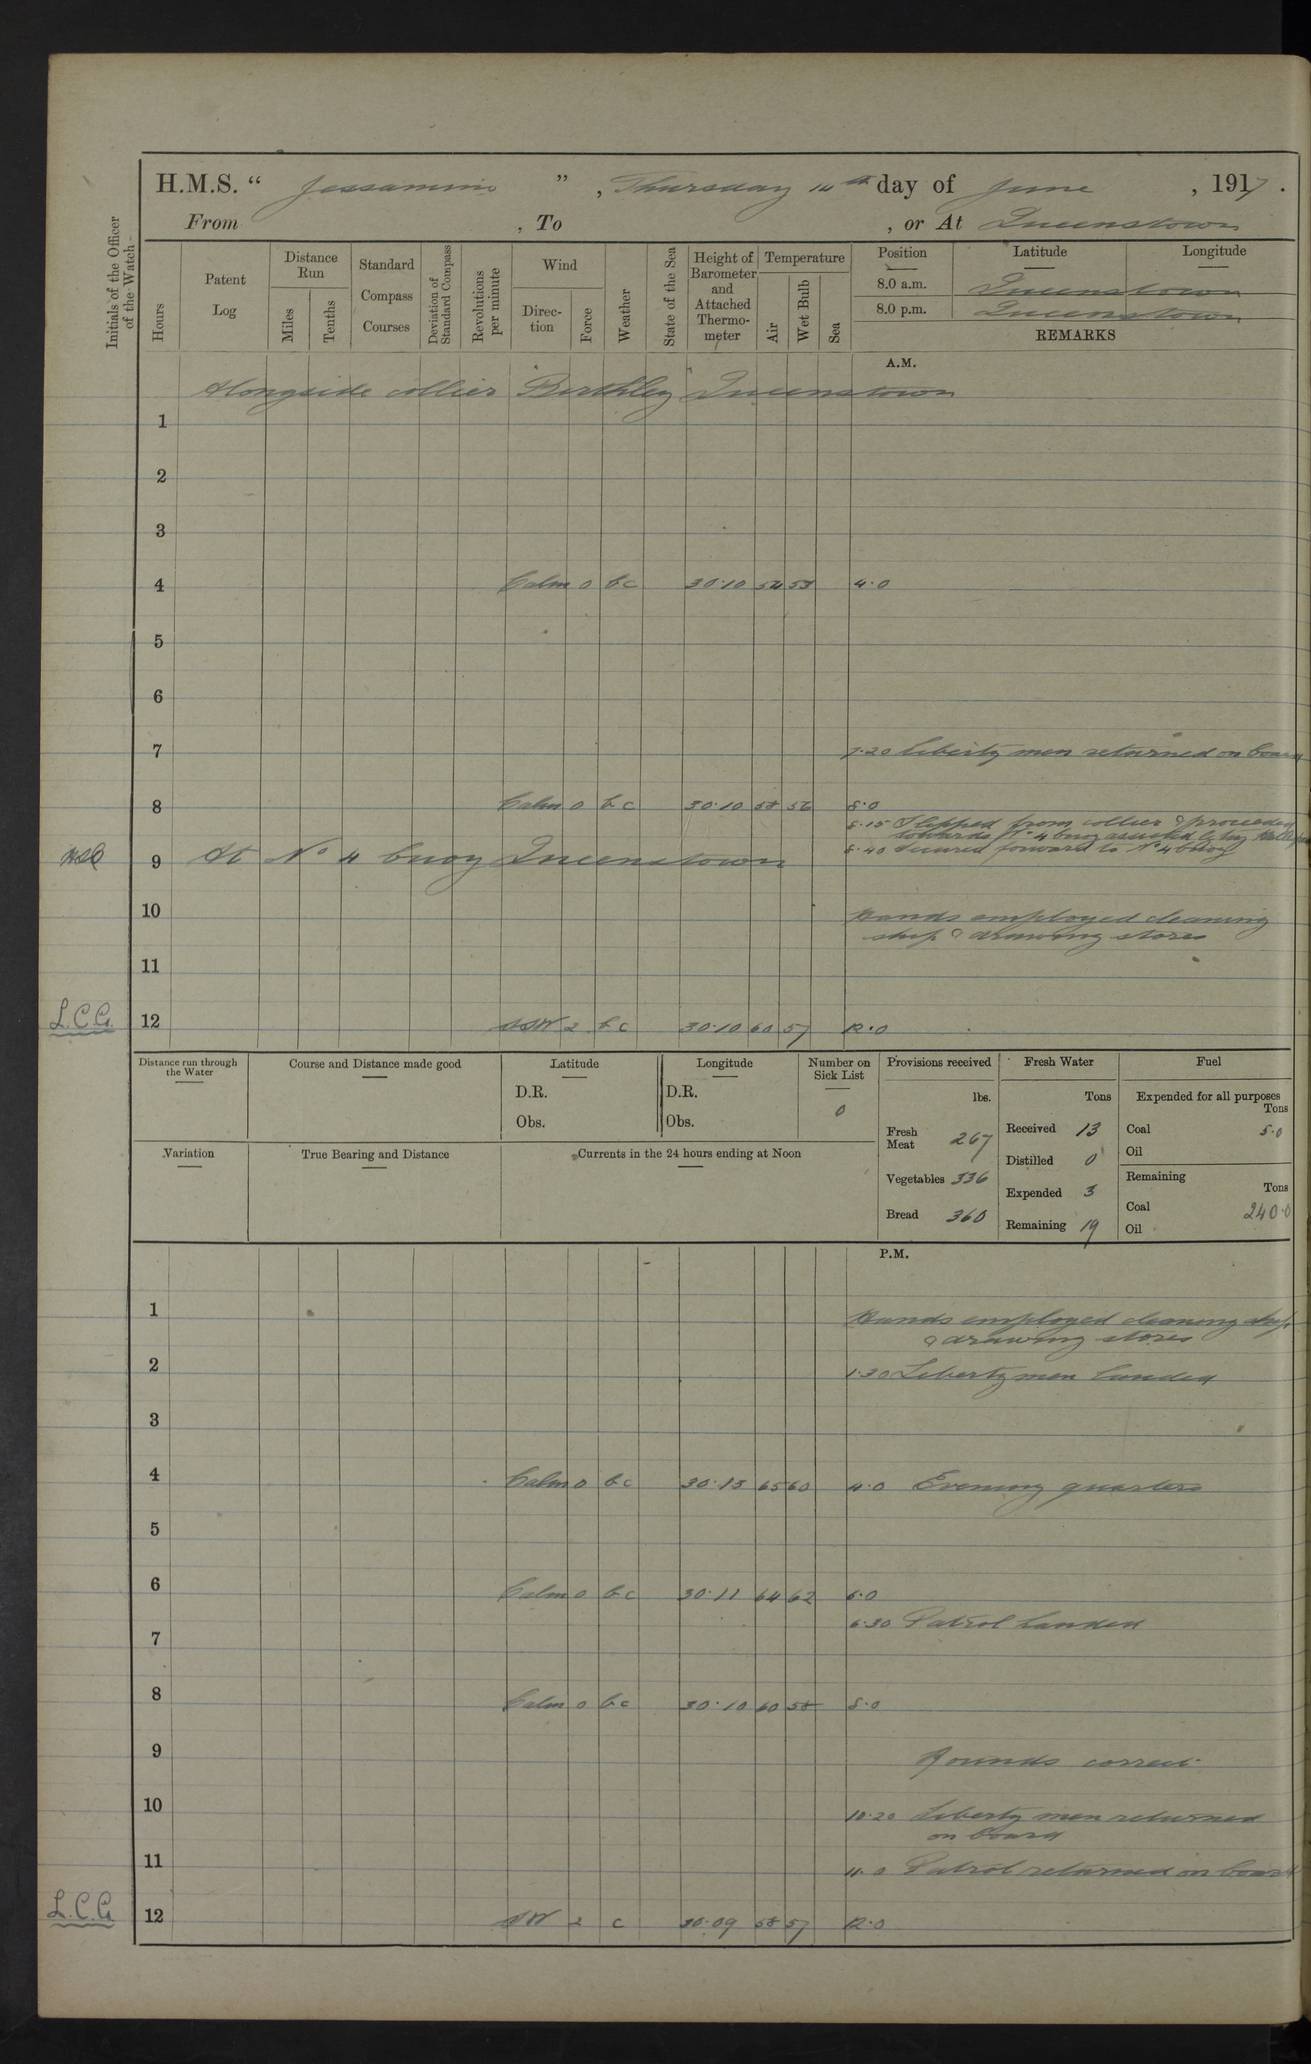 H.M.S. " Jessamine " , Thursday 14th day of June , 1917 .
From , To , or At Queenstown
Initials of the Officer of the Watch
Hours
Patent Log
Distance Run
Miles
Tenths
Standard Compass Courses
Deviation of Standard Compass
Revolutions per minute
Wind
Direc- tion
Force
Weather
State of the Sea
Height of Barometer and Attached Thermo- meter
Temperature
Air
Wet Bulb
Sea
Position Latitude Longitude
8.0 a.m. Queenstown
8.0 p.m. Queenstown
REMARKS
A.M.
Alongside collier Birthley Queenstown
1
2
3
4 Calm 0 bc 30.10 54 53 4.0
5
6
7 7.20 Liberty men returned on board
8 Calm 0 bc 30.10 58 56 8.0
8.15 Slipped from collier & proceeded
towards No 4 buoy assisted by tug
8.40 Secured forward to No 4 buoy
9 At No 4 buoy Queenstown
10 Hands employed cleaning
ship & drawing stores
11
L.C.G. 12 SSW 2 bc 30.10 60 57 12.0
Distance run through the Water
Course and Distance made good
Latitude
D.R.
Obs.
Longitude
D.R.
Obs.
Number on Sick List
0
Provisions received
lbs.
Fresh Meat 267
Vegetables 336
Bread 360
Fresh Water
Tons
Received 13
Distilled 0
Expended 3
Remaining 19
Fuel
Expended for all purposes
Tons
Coal 5.0
Oil
Remaining
Tons
Coal 240.0
Oil
Variation
True Bearing and Distance
Currents in the 24 hours ending at Noon
P.M.
1 Hands employed cleaning ship
& drawing stores
2 1.30 Liberty men landed
3
4 Calm 0 bc 30.13 65 60 4.0 Evening quarters
5
6 Calm 0 bc 30.11 64 62 6.0
6.30 Patrol landed
7
8 Calm 0 bc 30.10 60 58 8.0
9 Rounds correct
10 10.20 Liberty men returned
on board
11 11.0 Patrol returned on board
L.C.G. 12 SW 2 c 30.09 58 57 12.0